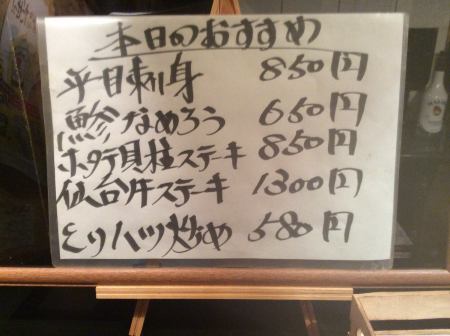 本日のおすすめ
平目刺身 850円
鯵なめろう 650円
ホタテ貝柱ステーキ 850円
仙台牛ステーキ 1300円
とりハツ炒め 580円